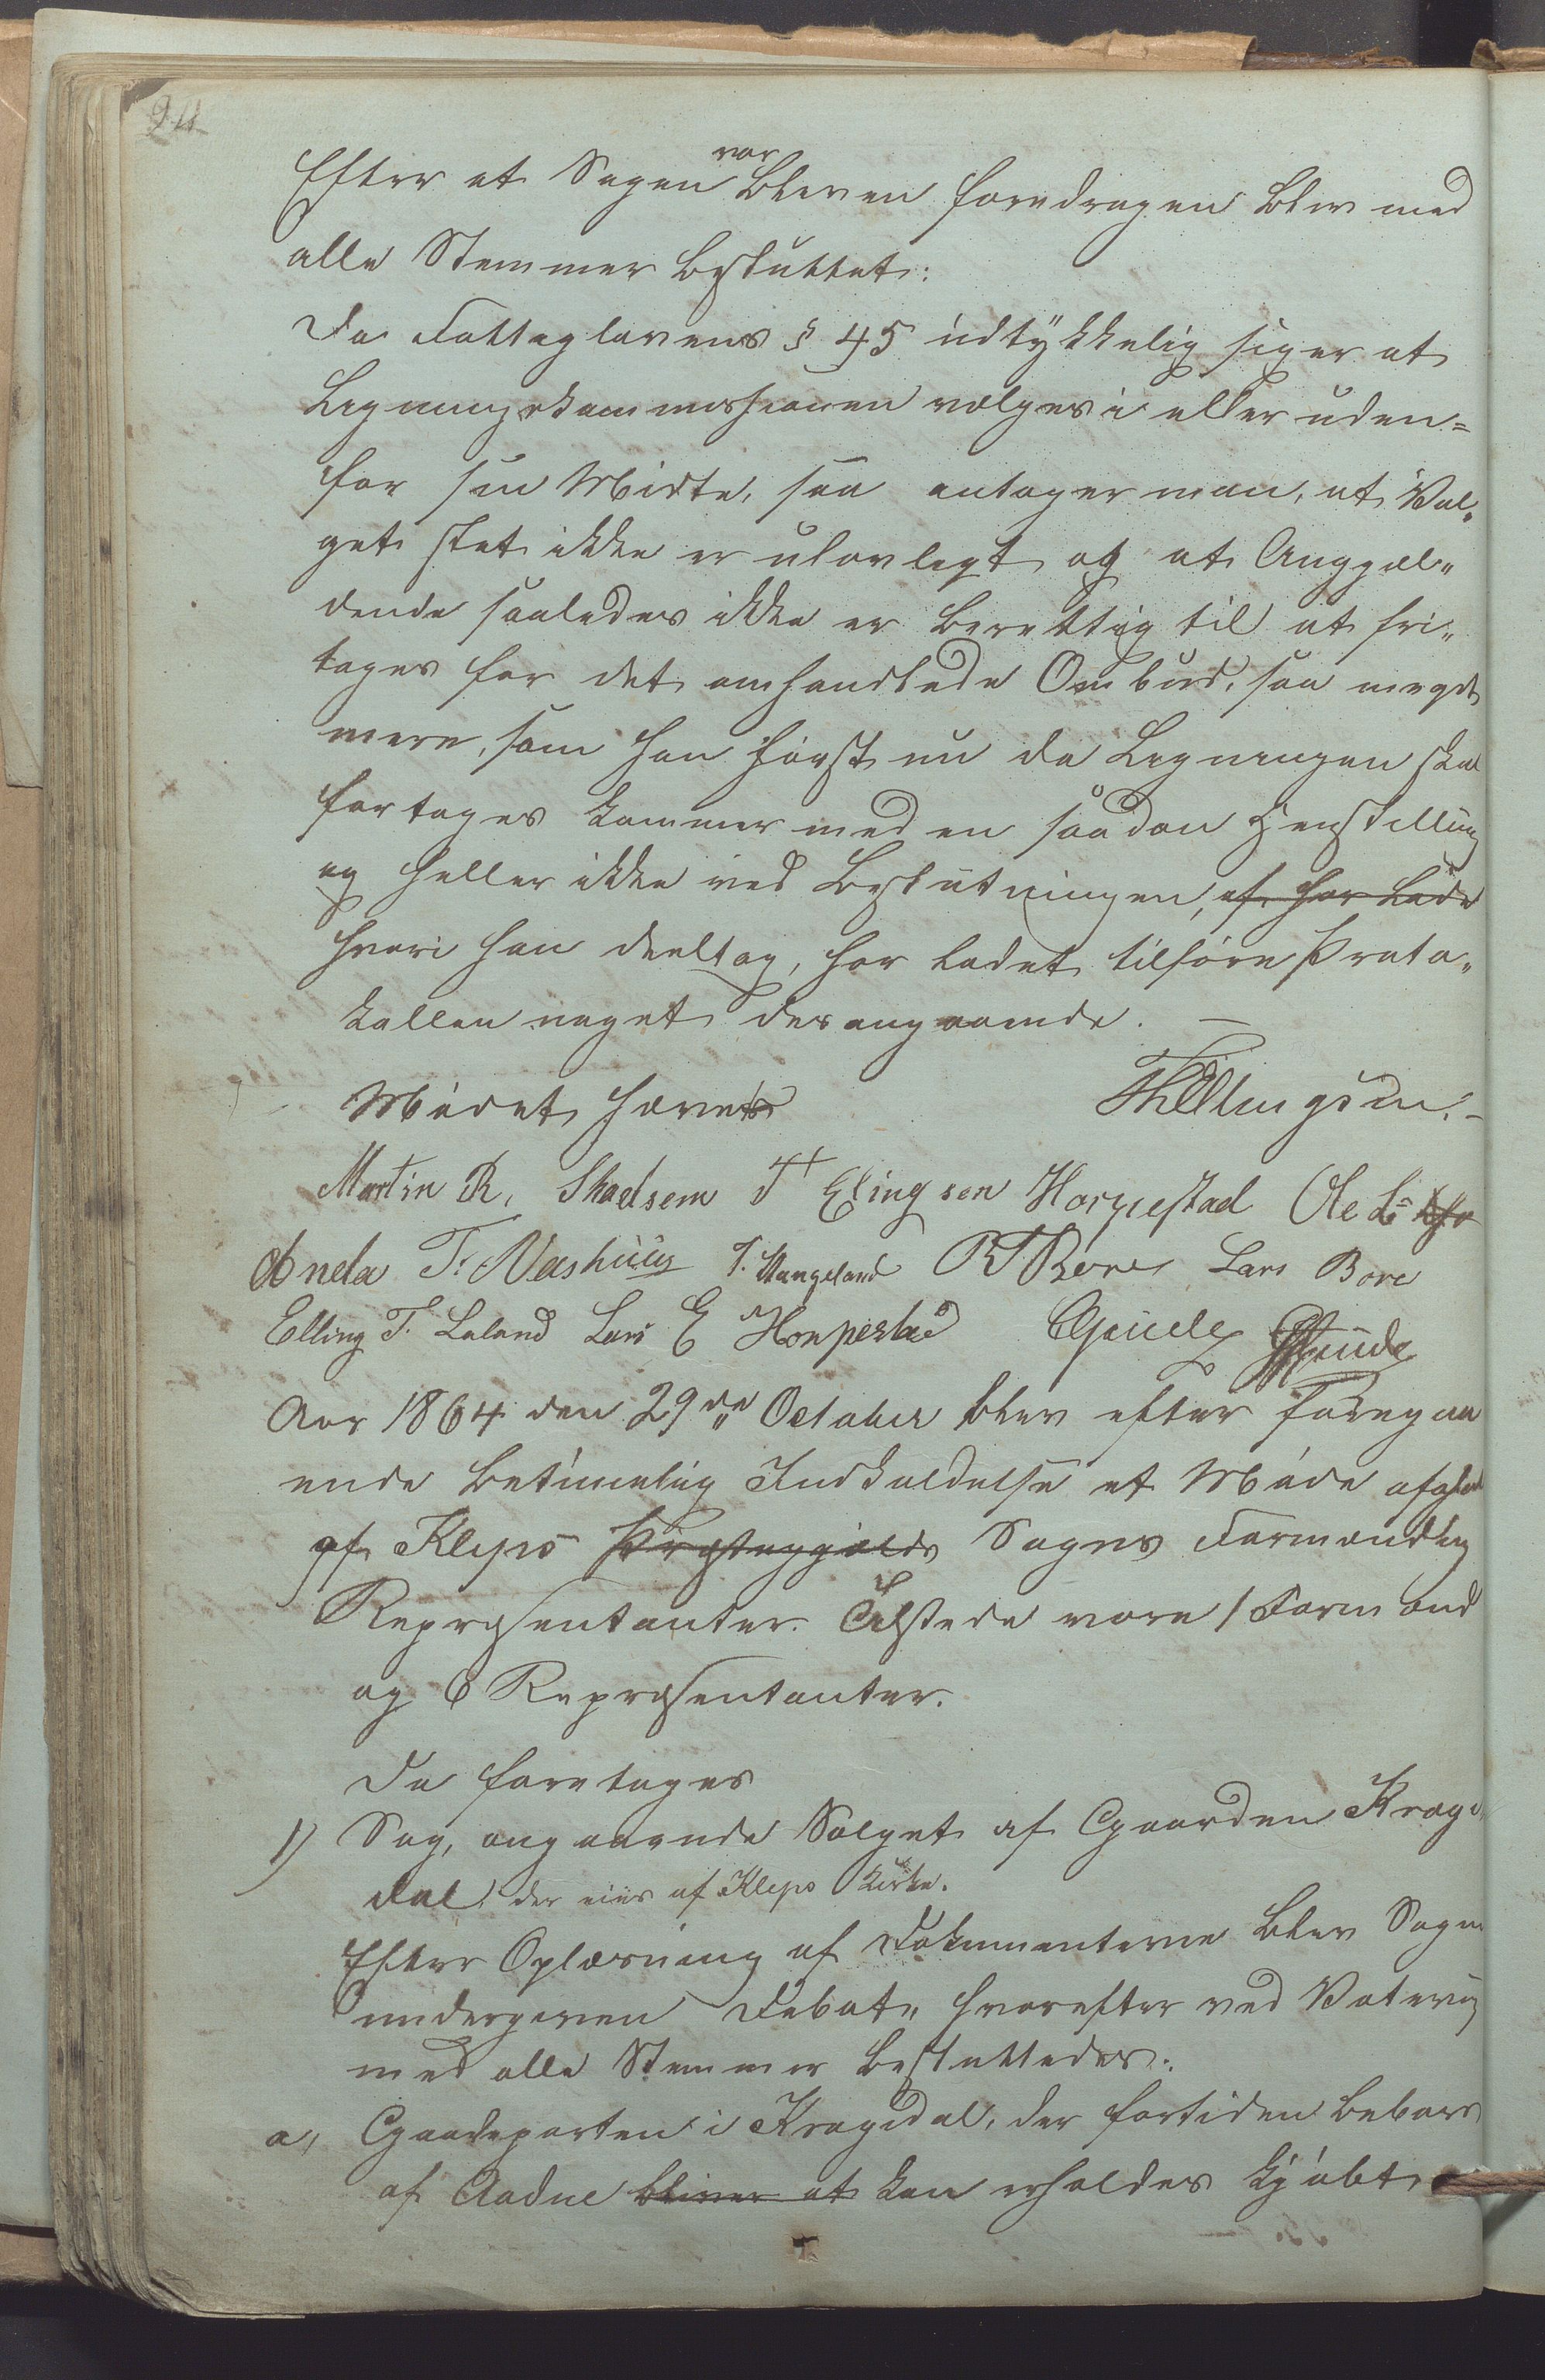 24
Efter at Sagen var bleven foredragen blev med
alle Stemmer besluttet:
Da Fattiglovens § 45 udtykkelig siger at
Ligningskommissionen vælges i eller uden=
for sin Midte, saa antager man, at Val„
get slet ikke er ulovligt og at Anggjæl„
dende saaledes ikke er berettig til at fri„
tages for det omhandlede Ombud, saa meget
mere, som han först nu da Ligningen skal
fortages kommer med en saadan Henstilling
og heller ikke ved Beslutningen, af har lade
hvori han deeltog, har ladet tilföre Proto„
kollen noget desangaaende. —
Mödet hævet
Th Ellingsen.-
Martin R. Skadsem T Elingsen Horpestad Ole L
Aneda T. Næshuus T. Stangeland R T Bore Lars Bore
Elling T. Laland Lars E Horpestad Gjuele
Aar 1864 den 29de October blev efter foregaa
ende betimelig Indkaldelse et Möde afholdt
af Kleps Præstegjelds Sogns Formandsk
Repræsentanter. Tilstede vare 1 Formand
og 6 Repræsentanter.
Da foretages
1) Sag, angaaende Salget af Gaarden Krage
dal, der eies af Kleps Kirke.
Efter Oplæsning af Dokumenterne blev Sagen
undergiven Debat„ hvorefter ved Votering
med alle Stemmer besluttedes:
a, Gaardparten i Kragedal, der fortiden beboes
af Aadne bliver at kan erholdes kjöbt